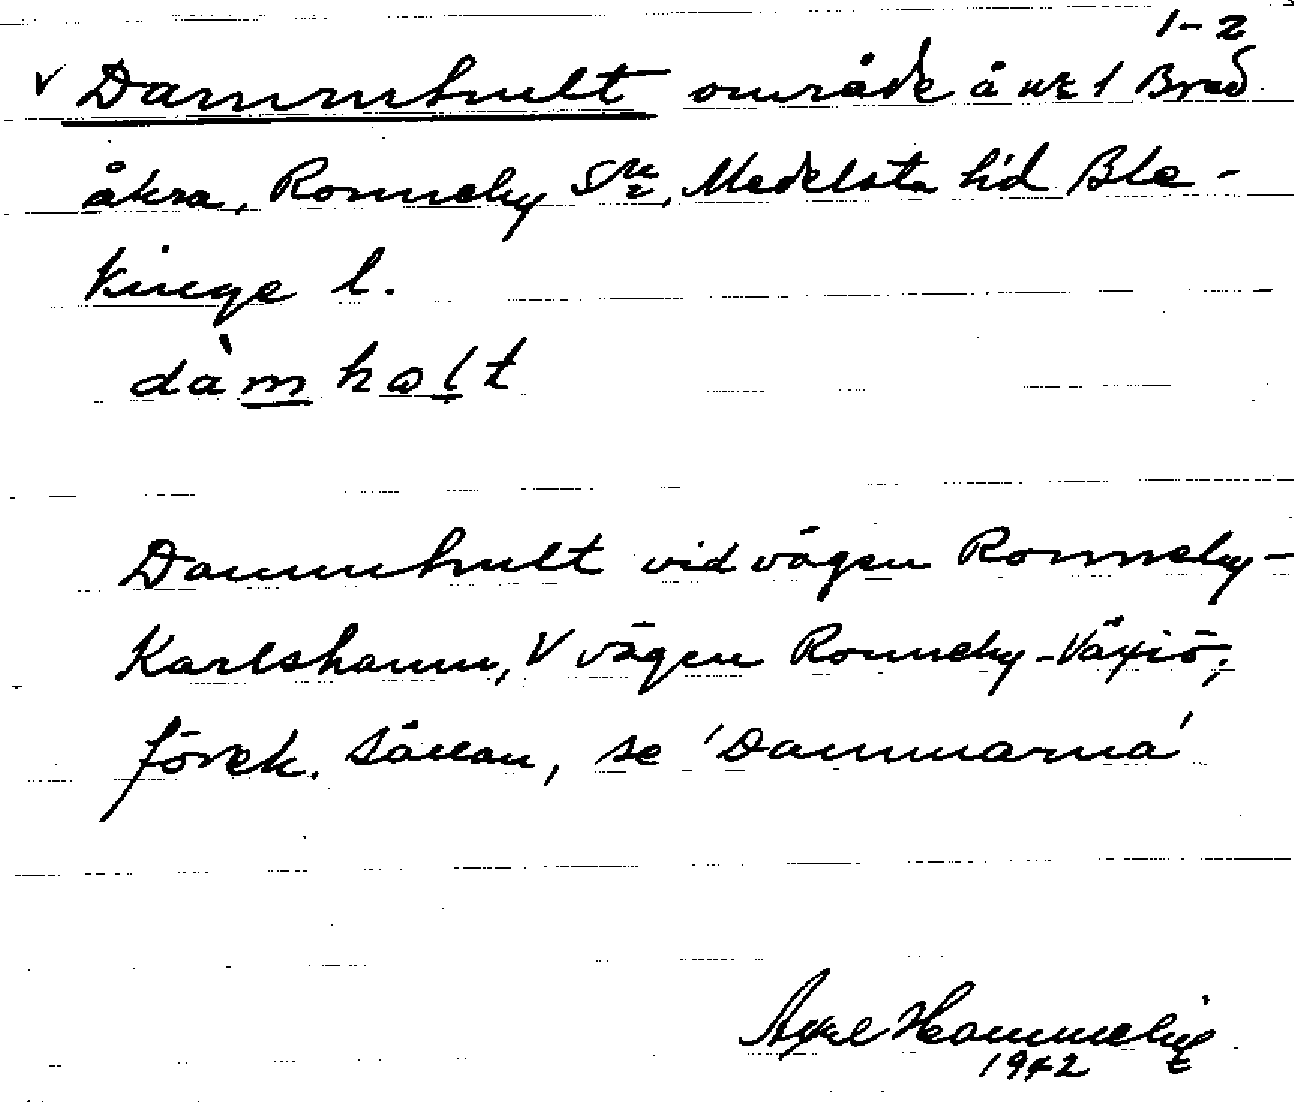 1-2
v Dammhult område å nr 1 Bred-
åkra, Ronneby sn, Medelsta hd Ble-
kinge l.
dàmhɷlt
Dammhult vid vägen Ronneby-
Karlshamn, V vägen Ronneby-Växiö;
förek. sällan, se 'Dammarna'
Axel Hammelig
1942